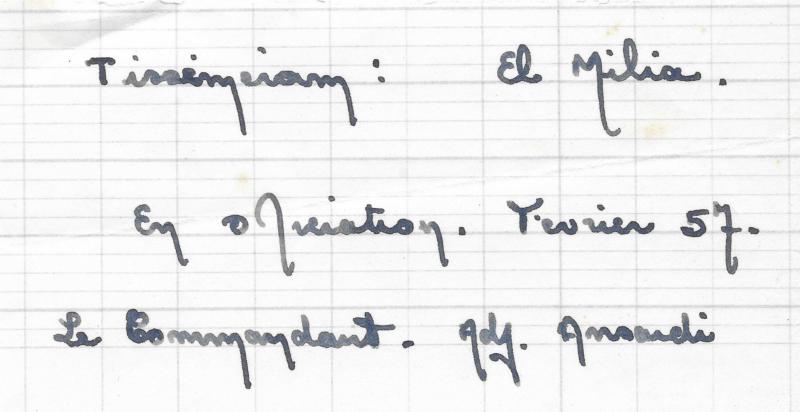 Tissémiran : El Milia.
En opération. Fevrier 57.
Le Commandant. Adj. Ansaldi